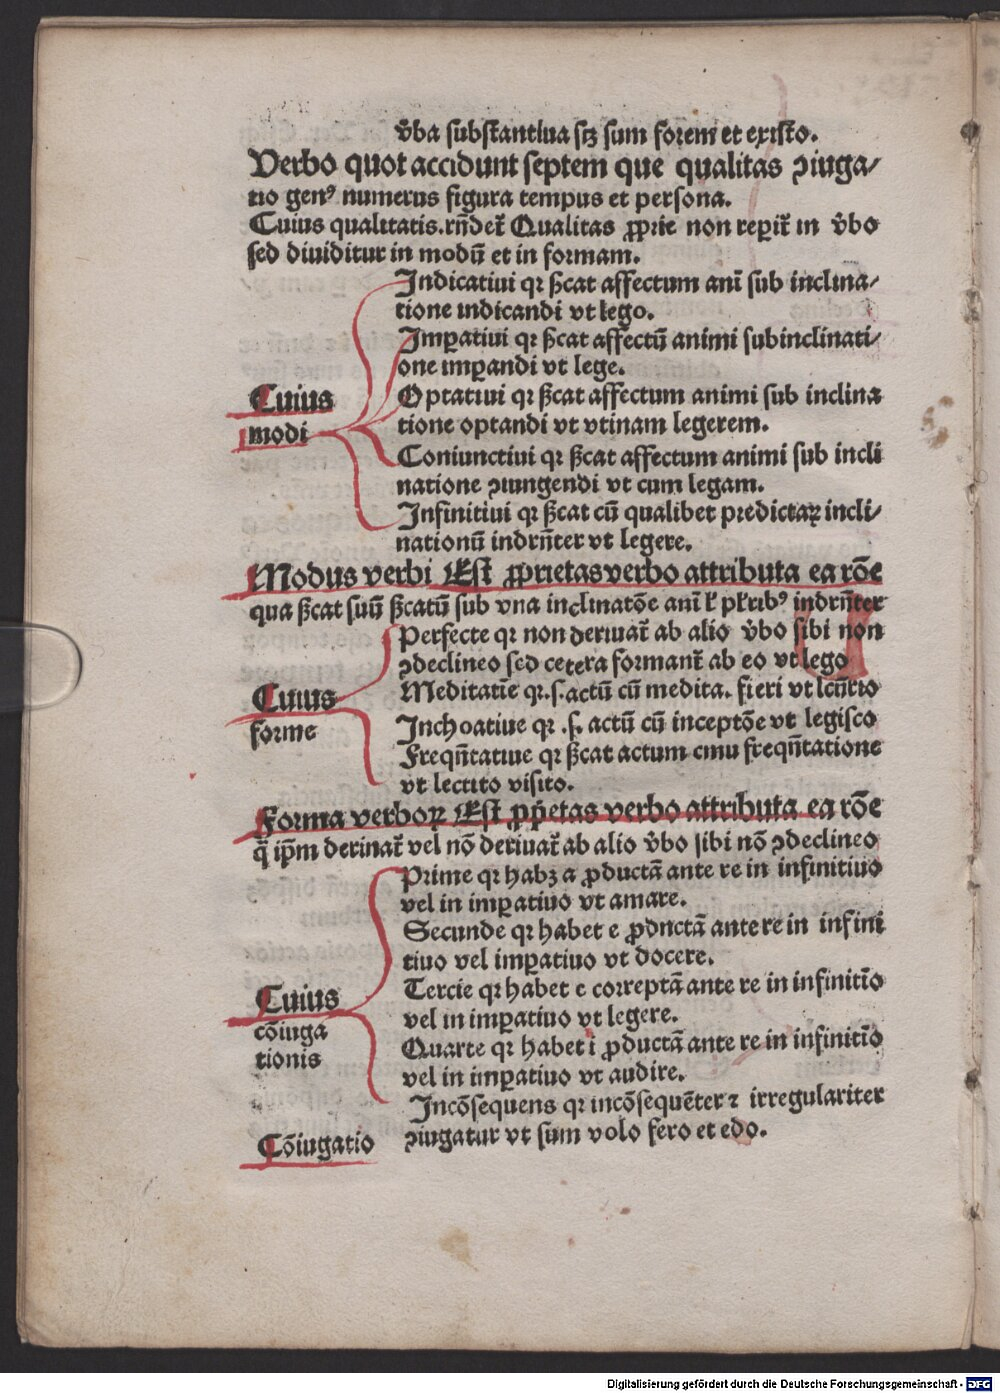 v̄ba substantiua sꝫ sum forem et existo.
Verbo quot accidunt septem que qualitas ꝯiuga/
tio genꝰ numerus figura tempus et persona.
Cuius qualitatis.rn̄det̄ Qualitas ꝓprie non reperit̄ in v̄bo
sed diuiditur in modū et in formam.
Indicatiui qr ßcat affectum anī sub inclina/
tione indicandi vt lego.
Imꝑatiui qr ßcat affectū animi subinclinati/
one imꝑandi vt lege.
Cuius
modi
Optatiui qr ßcat affectum animi sub inclina
tione optandi vt vtinam legerem.
Coniunctiui qr ßcat affectum animi sub incli
natione ꝯiungendi vt cum legam.
Infinitiui qr ßcat cū qualibet predictaꝝ incli/
nationū indrn̄ter vt legere.
Modus verbi Est ꝓprietas verbo attributa ea rōe
qua ßcat suū ßcatū sub vna inclinatōe anī ł płribꝰ indrn̄ter
Perfecte qr non deriuat̄ ab alio v̄bo sibi non
ꝯdeclineo sed cetera formant̄ ab eo vt lego
Cuius
forme
Meditatīe qr.s.actū cū medita. fieri vt lcūrio
Inchoatiue qr .s. actū cū inceptōe vt legisco
Freqn̄tatiue qr ßcat actum cmu freqn̄tatione
vt lectito visito.
Forma verboꝝ Est ꝓp̄etas verbo attributa ea rōe
q̄ ip̄m deriuat̄ vel nō deriuat̄ ab alio v̄bo sibi nō ꝯdeclineo
Prime qr habꝫ a ꝓductā ante re in infinitiuo
vel in imꝑatiuo vt amare.
Secunde qr habet e ꝓdnctā ante re in infini
tiuo vel imꝑatiuo vt docere.
Cuius
cōiuga
tionis
Tercie qr habet e correptā ante re in infinitīo
vel in imꝑatiuo vt legere.
Quarte qr habet i ꝓductā ante re in infinitīo
vel in imꝑatiuo vt audire.
Incōsequens qr incōsequēter ⁊ irregulariter
ꝯiugatur vt sum volo fero et edo.
Cōiugatio
Digitalisierung gefördert durch die Deutsche Forschungsgemeinschaft - DFG